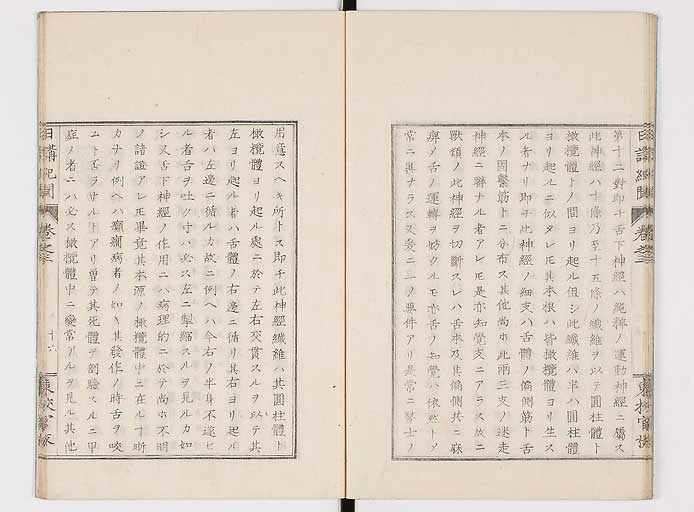 第十二對即チ舌下神經ハ純粹ノ運動神經ニ屬ス
此神經ハ十條乃至十五條ノ纖維ヲ以テ圓柱體ト
橄欖體トノ間ヨリ起ル但シ此纖維ハ半ハ圓柱體
ヨリ起ルニ似タレ𪜈其本根ハ皆橄欖體ヨリ生ス
ル者ナリ即チ此神經ノ細支ハ舌體ノ偏側筋ト舌
本ノ固繫筋トニ分布ス其他尚ホ此兩三支ノ迷走
神經ニ聯ナル者アレ𪜈是亦知覺支ニアラス故ニ
獸類ノ此神經ヲ切斷スレハ舌本及其偏側共ニ麻
痹シ舌ノ運轉ヲ妨クルモ亦舌ノ知覺ハ依然トシ
常ニ異ナラス又爰ニ一ノ要件アリ是常ニ醫士ノ
日講紀聞 卷之三
東校官版
用意スヘキ所トス即チ此神經纖維ハ其圓柱體ト
橄欖體ヨリ起ル處ニ於テ左右交貫スルヲ以テ其
左ヨリ起ル者ハ舌體ノ右邊ニ循リ其右ヨリ起ル
者ハ左邊ニ循ル力故ニ例ヘハ今右ノ半身不遂ヒ
ル者舌ヲ吐ク寸ハ必ス左ニ掣縮スルヲ見ル力如
シ又舌下神經ノ作用ニハ病理的ニ於テ尚ホ不明
ノ諸證アレ𪜈畢竟其本源ノ橄欖體中ニ在ルヿ晰
カナリ例ヘハ癲癎病者ノ如キ其發作ノ時舌ヲ咬
ニト否ラサルトアリ曾テ其死體ヲ剖驗スルニ甲
症ノ者ニハ必ス橄欖體中ニ變常アルヲ見ル其他
日講紀聞 卷之三 十六 東校官版